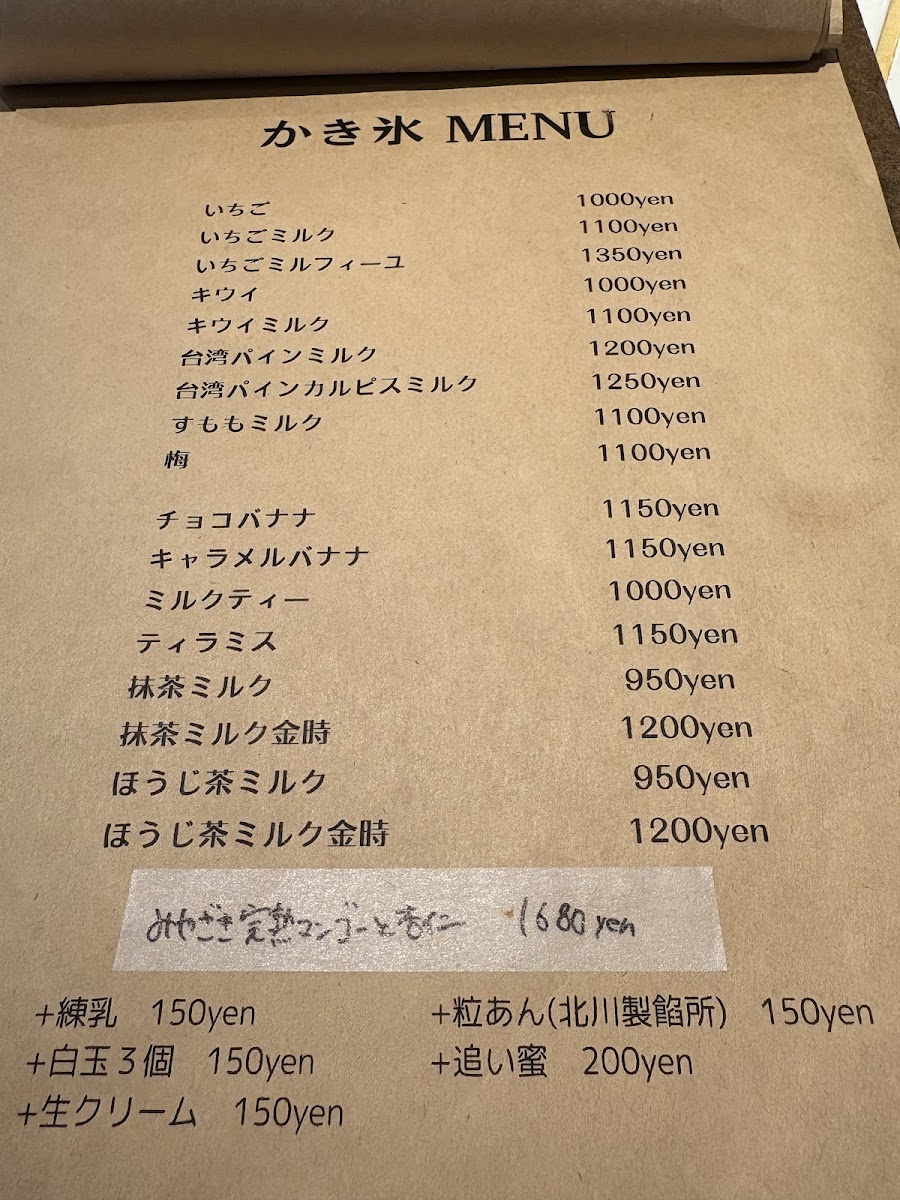 かき氷 MENU
いちご 1000yen
いちごミルク 1100yen
いちごミルフィーユ 1350yen
キウイ 1000yen
キウイミルク 1100yen
台湾パインミルク 1200yen
台湾パインカルピスミルク 1250yen
すももミルク 1100yen
梅 1100yen
チョコバナナ 1150yen
キャラメルバナナ 1150yen
ミルクティー 1000yen
ティラミス 1150yen
抹茶ミルク 950yen
抹茶ミルク金時 1200yen
ほうじ茶ミルク 950yen
ほうじ茶ミルク金時 1200yen
みやざき完熟マンゴーと杏仁 1680yen
+練乳 150yen +粒あん(北川製餡所) 150yen
+白玉３個 150yen +追い蜜 200yen
+生クリーム 150yen